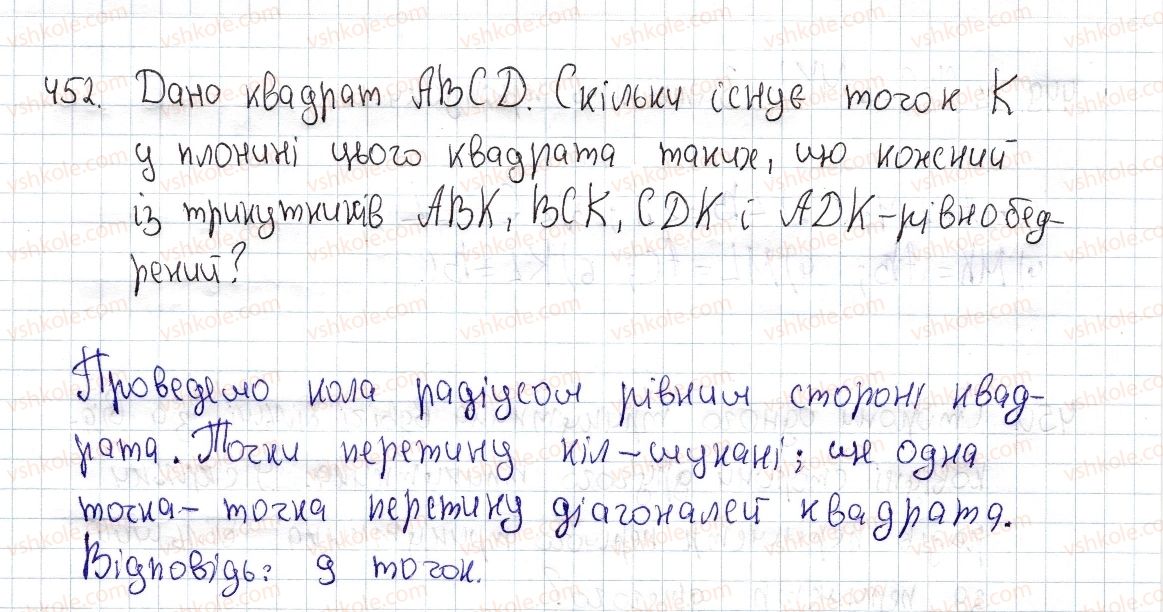 452. Дано квадрат ABCD. Скільки існує точок K
у плонині цього квадрата таких, що кожний
із трикутників ABK, BCK, CDK і ADK-рівнобед-
рений?
Проведемо кола радіусом рівним стороні квад-
рата. Точки перетину кіл-шукані; ще одна
точка- точка перетину діагоналей квадрата.
Відповідь: 9 точок.